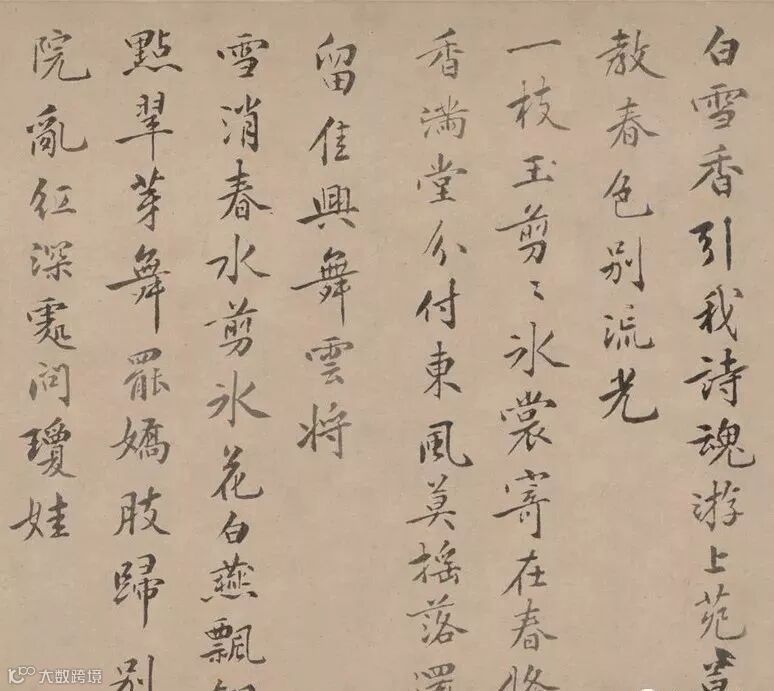 白雪香引我詩魂游上苑
教春色別流光
一枝玉剪〻氷裳寄在春
香滿堂分付東風莫搖落
留佳興舞雲將
雪消春水剪氷花白燕飄
點翠芽舞罷嬌肢歸別
院亂紅深處問瓊娃
大数跨境